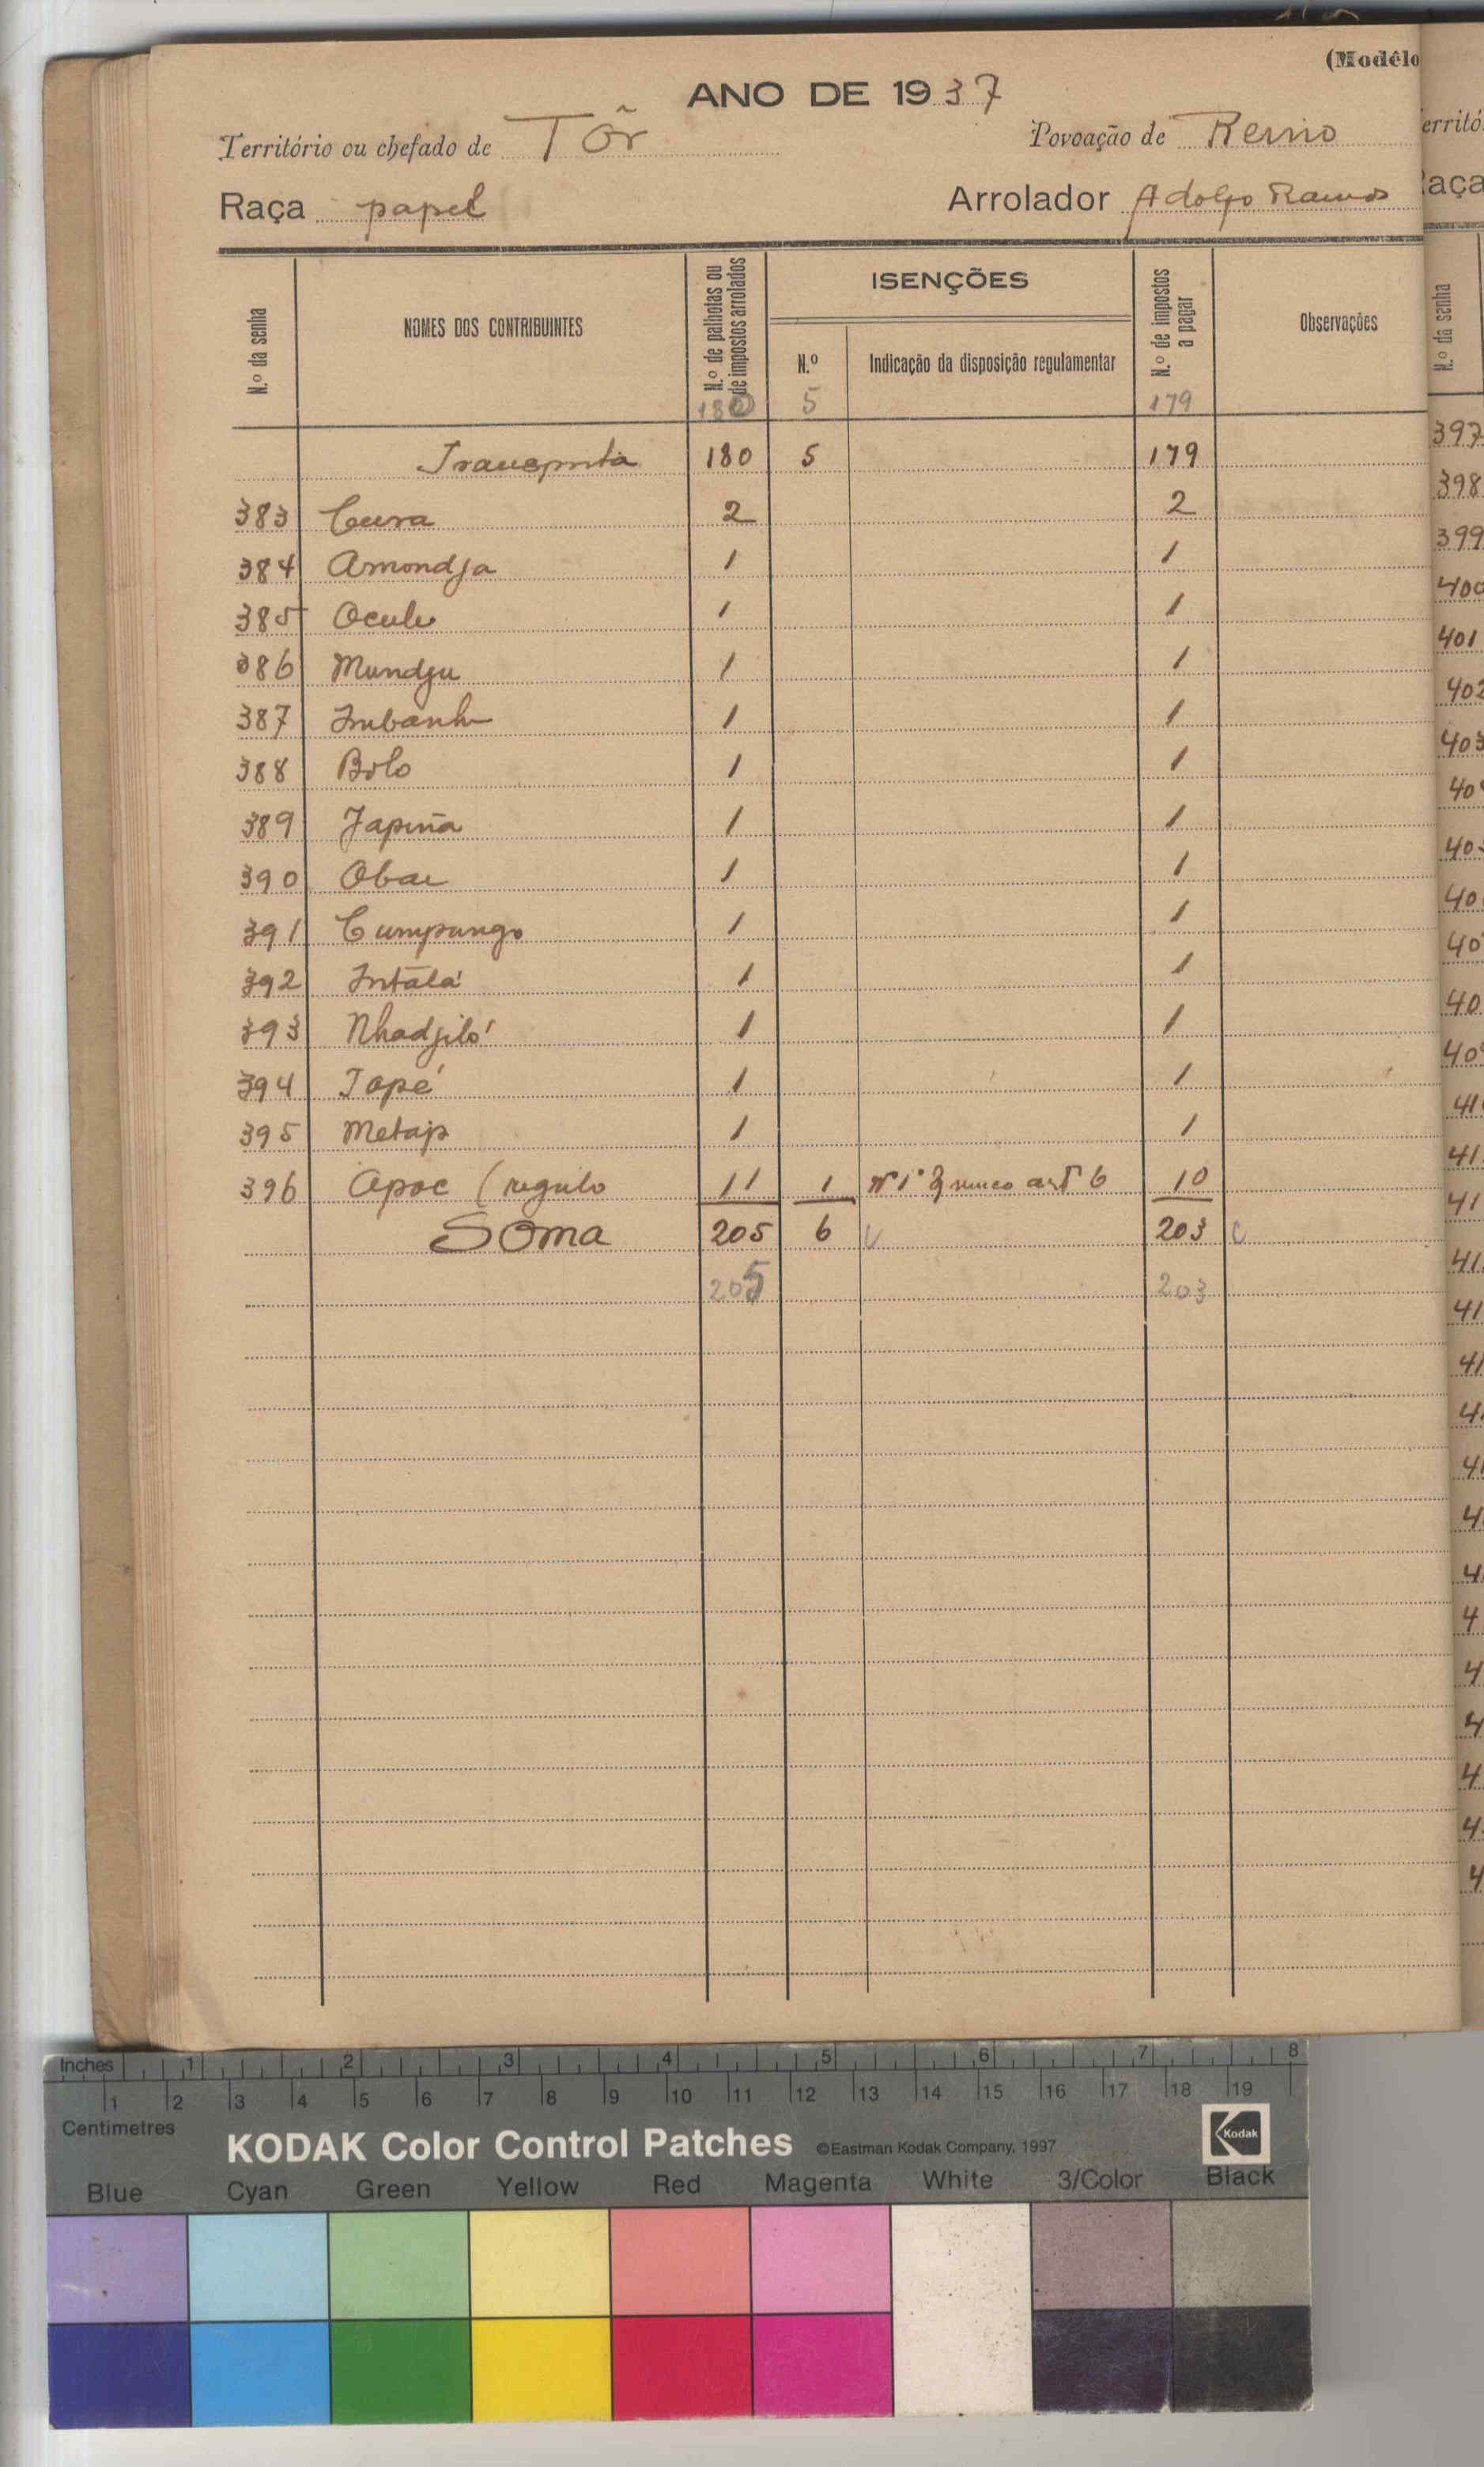 (Modêlo
ANO DE 1937
Território ou chefado de Tõr Povoação de Reino
Raça papel Arrolador Adolfo Ramos
N.º da senha
NOMES DOS CONTRIBUINTES
N.º de palhotas ou de impostos arrolados
ISENÇÕES
N.º
Indicação da disposição regulamentar
N.º de impostos a pagar
Observações
180 5 179
Transporta 180 5 179
383 Cura 2 2
384 Amondja 1 1
385 Oculu 1 1
386 Mundju 1 1
387 Imbanh 1 1
388 Bolo 1 1
389 Japina 1 1
390 Obac 1 1
391 Cumpungo 1 1
392 Intālá 1 1
393 Nhadjiló 1 1
394 Japé 1 1
395 Metap 1 1
396 Apoc (regulo 11 1 Nº 1º art 6 10
Soma 205 6 203
205 203
erritó
aça
N.º da senha
397
398
399
400
401
402
403
Inches 1 2 3 4 5 6 7 8
1 2 3 4 5 6 7 8 9 10 11 12 13 14 15 16 17 18 19
Centimetres
KODAK Color Control Patches ©Eastman Kodak Company, 1997 Kodak
Blue Cyan Green Yellow Red Magenta White 3/Color Black